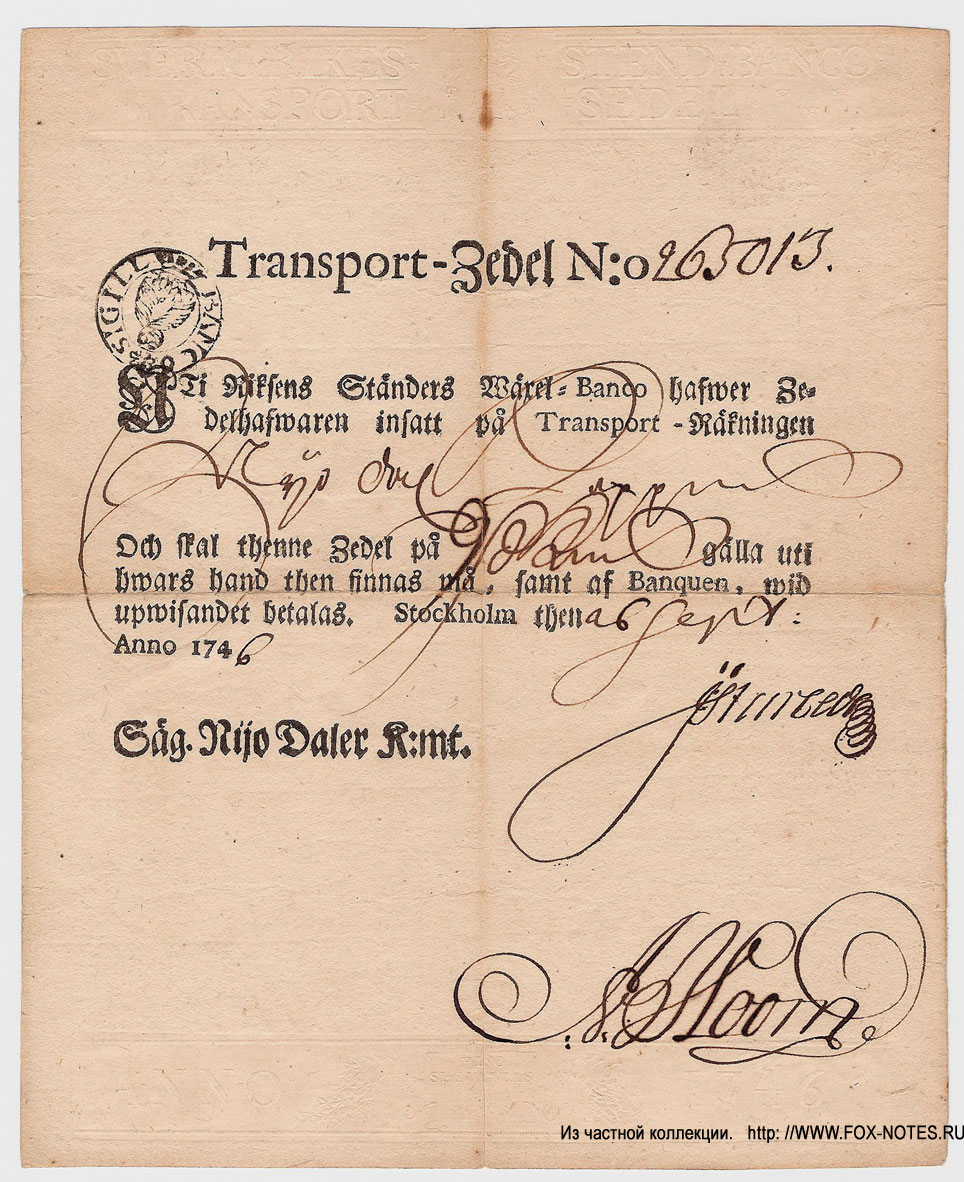 SWERIKES RIKES STEND: BANCO
TRANSPORT SEDEL
Transport-Zedel N:o 263013.
SIGILL BANC
ATi Riksens Ständers Wäxel-Banco hafwer Ze-
delhafwaren insatt på Transport-Räkningen
Nijo dal
Och skal thenne Zedel på gälla uti
hwars hand then finnas må, samt af Banquen, wid
upwisandet betalas. Stockholm then 26 Sept:
Anno 1746
Säg. Nijo Daler K:mt.
Bloom
ANNO 1746
Из частной коллекции. http: //WWW.FOX-NOTES.RU